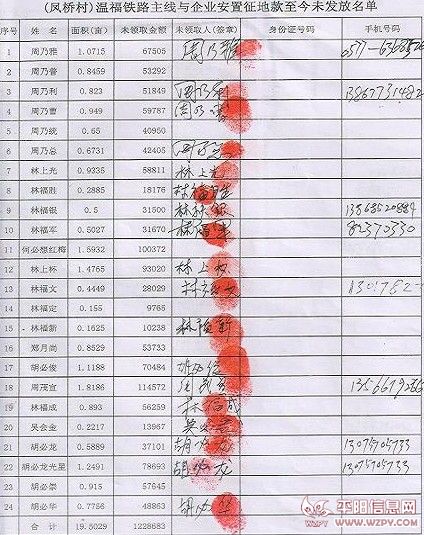 (凤桥村)温福铁路主线与企业安置征地款至今未发放名单
序号 姓名 面积(亩) 未领取金额 未领取人(签章) 身份证号码 手机号码
1 周乃雅 1.0715 67505 周乃雅
2 周乃普 0.8459 53292
3 周乃利 0.823 51849 周乃利 13867731482
4 周乃曹 0.949 59787 周乃曹
5 周乃统 0.65 40950
6 周乃总 0.6731 42405
7 林上光 0.9335 58811 林上光
8 林福胜 0.2885 18176 林福胜
9 林福银 0.5 31500 林福银 13868520884
10 林福军 0.5027 31670 林福军 82370330
11 何必想红梅 1.5932 100372
12 林上标 1.4765 93020 林上
13 林福文 0.4449 28029 林福文
14 林福定 0.155 9765
15 林福新 0.1625 10238 林福新
16 郑月尚 0.8529 53733
17 胡必俊 1.1188 70484
18 周茂宣 1.8186 114572
19 林福成 0.893 56259 林福成
20 吴会金 0.2217 13967
21 胡必龙 0.5889 37101 胡必龙 13075105733
22 胡必龙光星 1.2491 78693 胡必龙 13075105733
23 胡必崇 0.915 57645
24 胡必华 0.7756 48863 胡必华
合计 19.5029 1228683
平阳信息网
WWW.WZPY.COM